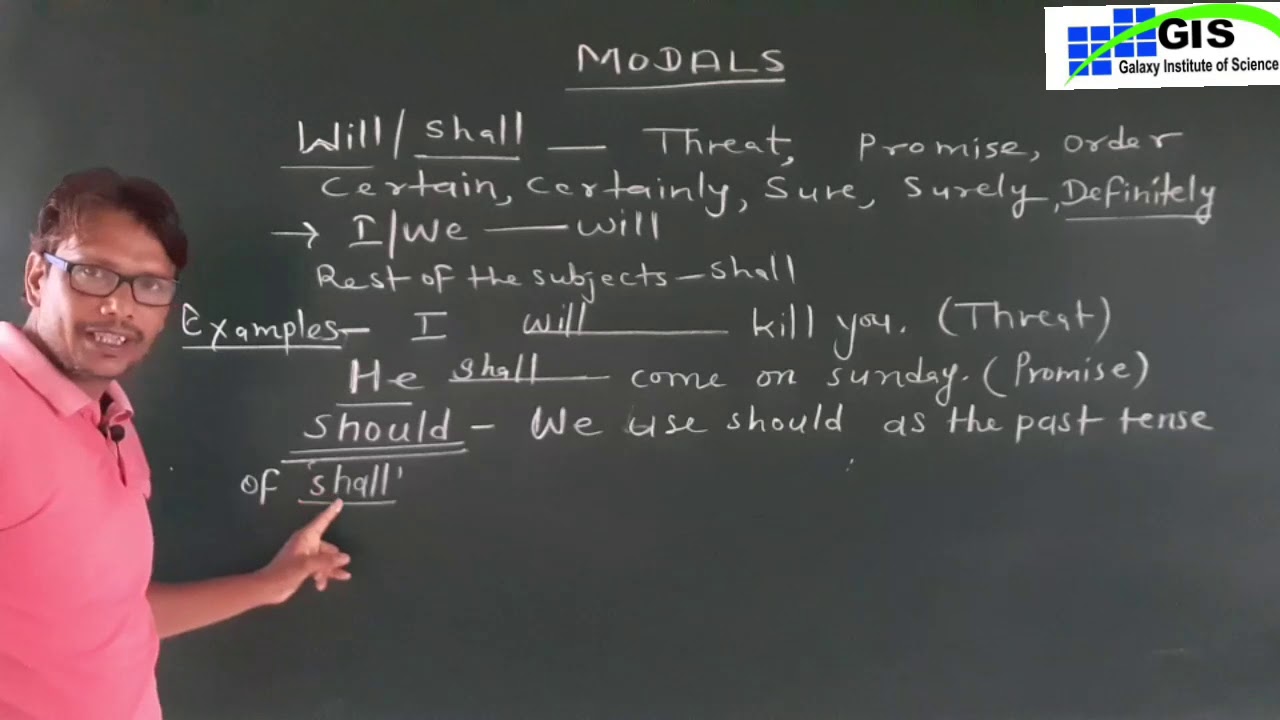 GIS
Galaxy Institute of Science
MODALS
Will/shall — Threat, Promise, order
Certain, Certainly, Sure, Surely, Definitely
→ I/We — will
Rest of the subjects - shall
Examples- I will kill you. (Threat)
He shall come on sunday. (Promise)
should - We use should as the past tense
of 'shall'